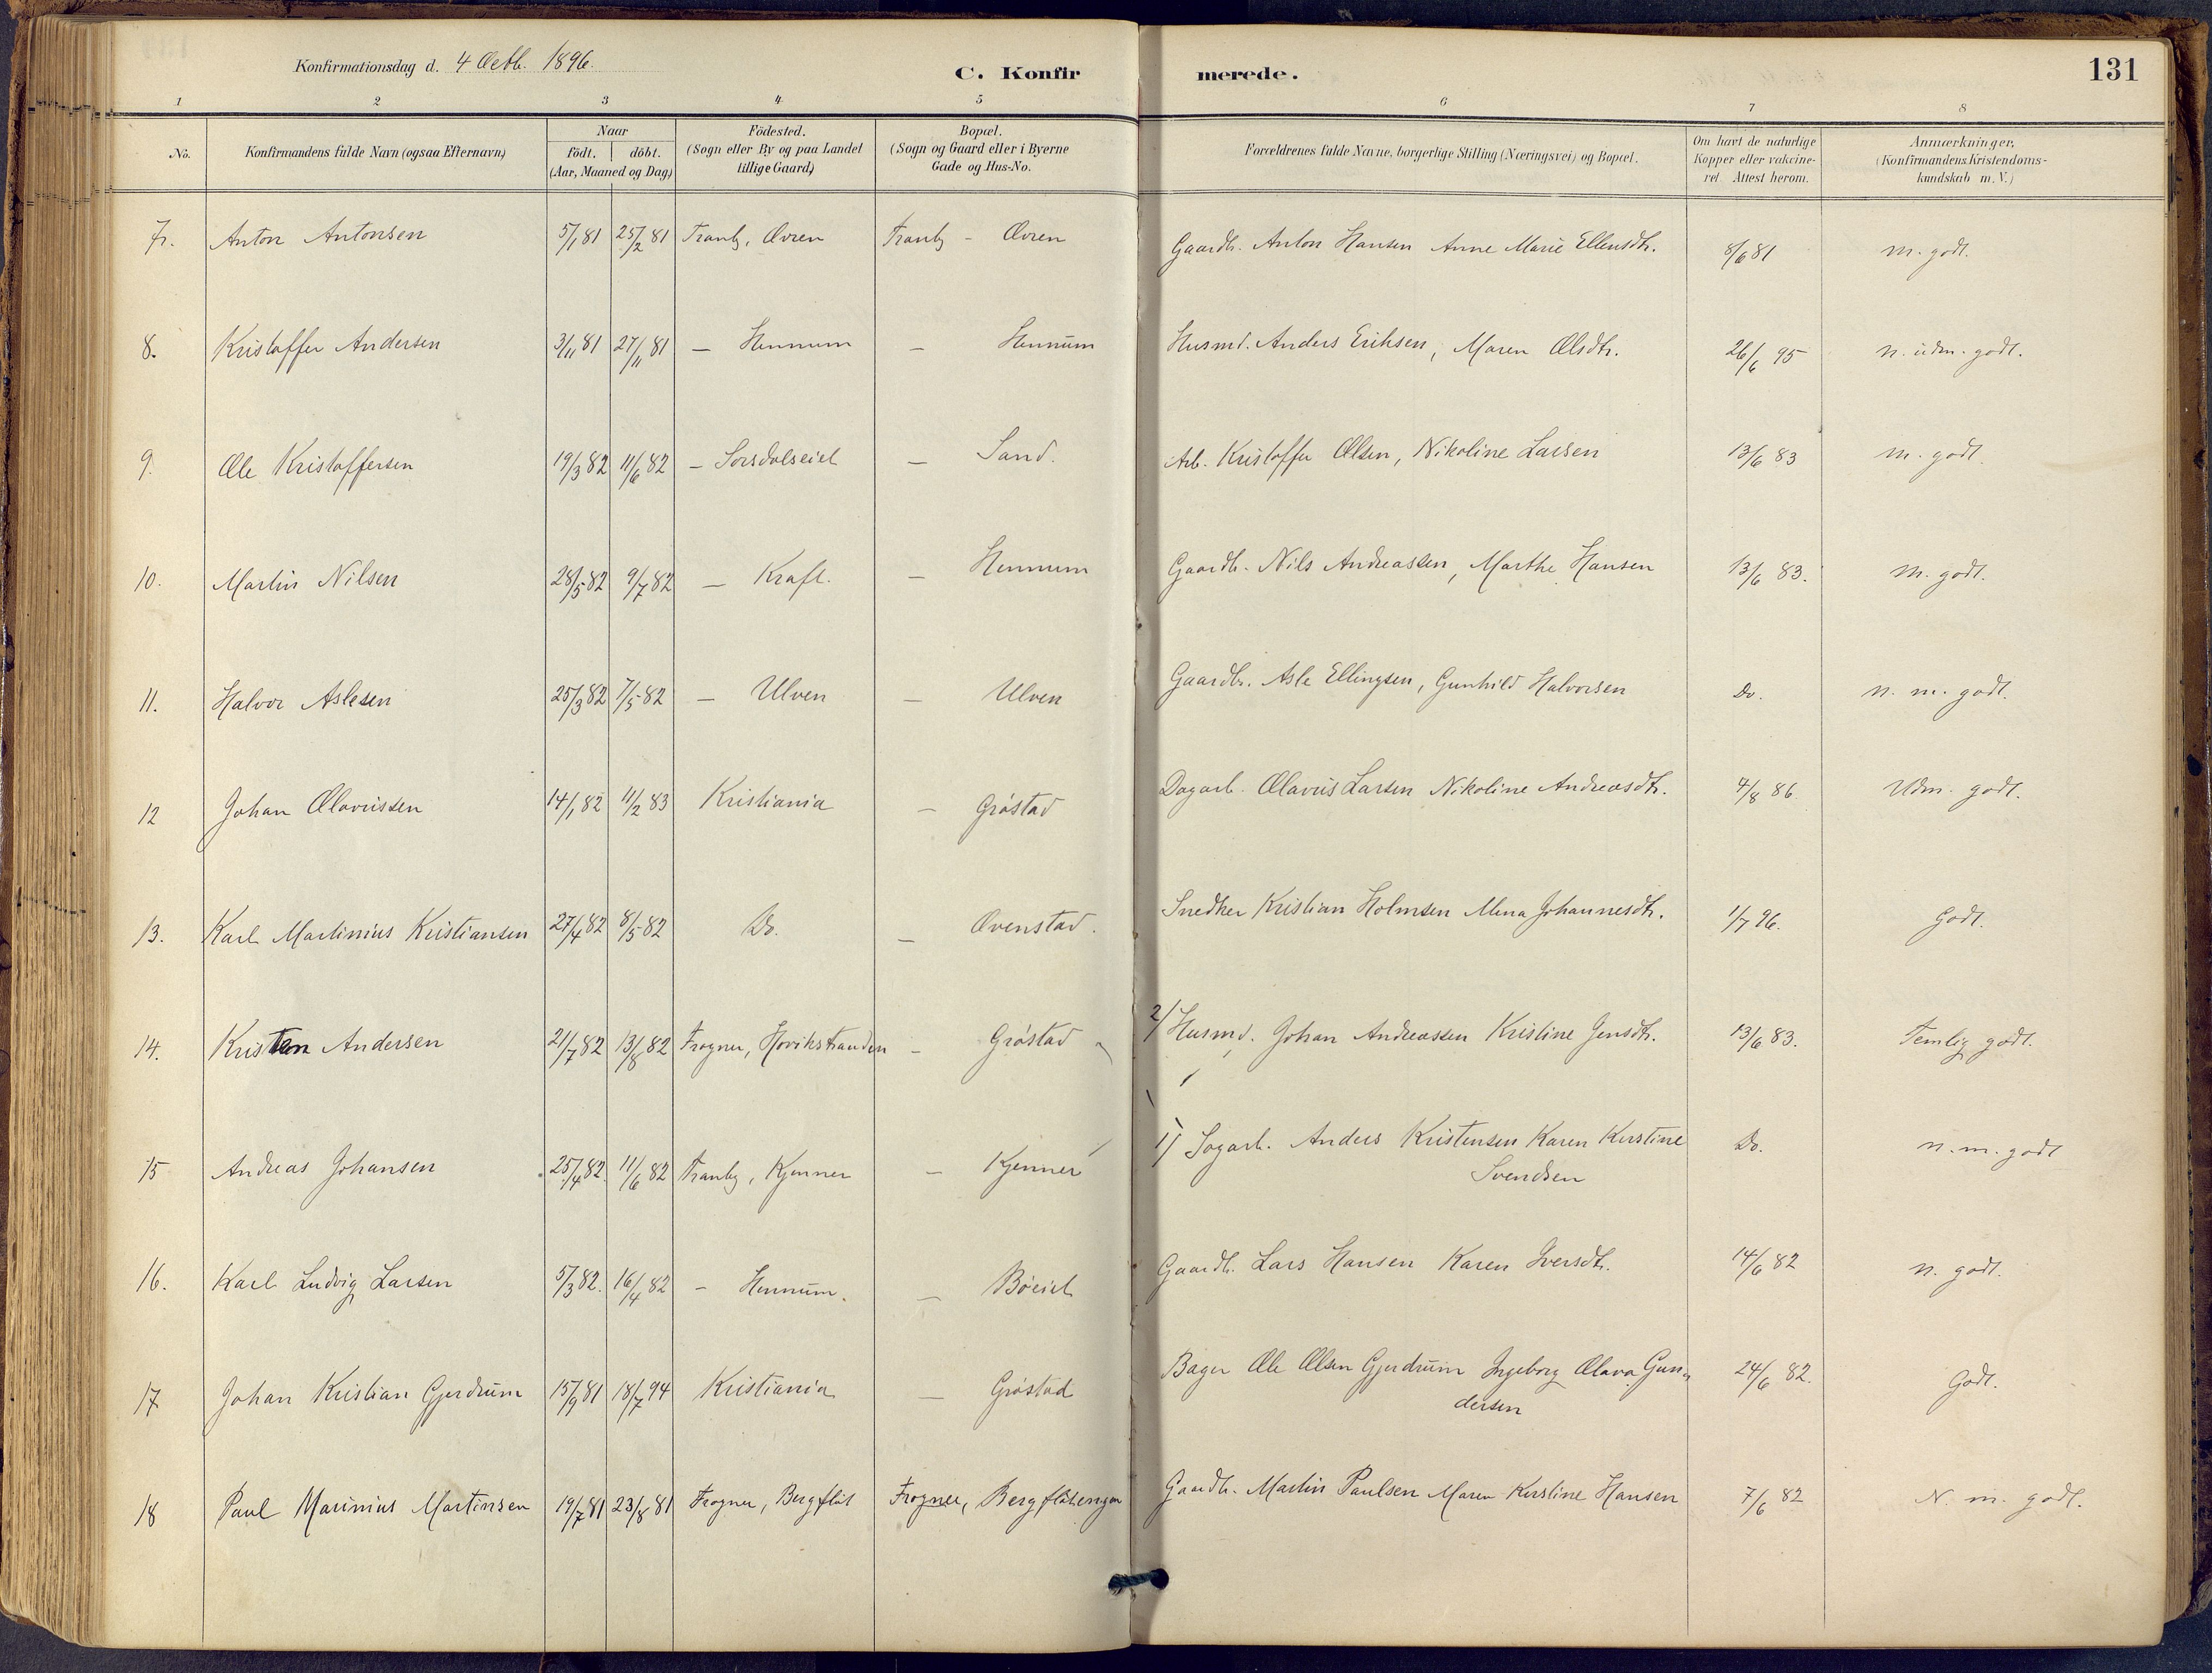 Konfirmationsdag d. 4 Octb. 1896.
C. Konfirmerede.
131
1 2 3 4 5 6 7 8
No. Konfirmandens fulde Navn (ogsaa Efternavn) Naar födt. döbt. (Aar, Maaned og Dag) Födested. (Sogn eller By og paa Landet tillige Gaard) Bopæl. (Sogn og Gaard eller i Byerne Gade og Hus-No. Forældrenes fulde Navne, borgerlige Stilling (Næringsvei) og Bopæl. Om havt de naturlige Kopper eller vakcineret. Attest herom. Anmærkninger, (Konfirmandens Kristendomskundskab m. V.)
7. Anton Antonsen 5/1 81 25/2 81 Tranby, Ovren Tranby - Ovren Gaardb. Anton Hansen Anne Marie Ellensdtr. 8/6 81 m. godt.
8. Kristoffer Andersen 3/11 81 27/11 81 — Hennum — Hennum Husmd. Anders Eriksen, Maren Olsdtr. 26/6 95 n. udm. godt.
9. Ole Kristoffersen 19/3 82 11/6 82 — Sorsdalseiet — Sand. Arb. Kristoffer Olsen, Nikoline Larsen 13/6 83 m. godt.
10. Martin Nilsen 28/5 82 9/7 82 — Kraft. — Hennum Gaardb. Nils Andreassen, Marthe Hansen 13/6 83. m. godt.
11. Halvor Aslesen 25/3 82 7/5 82 — Ulven — Ulven Gaardbr. Asle Ellingsen, Gunhild Halvorsen Do. n. m. godt.
12 Johan Olavussen 14/1 82 11/2 83 Kristiania — Gröstad Dagarb. Olavus Larsen Nikoline Andreasdtr. 4/8 86 Udm. godt.
13. Karl Martinius Kristiansen 27/4 82 8/5 82 Do. — Ovenstad. Snedker Kristian Holmsen Alma Johannesdtr. 1/7 96. Godt.
14. Kristen Andersen 21/7 82 13/8 82 Frogner, Hovikstranden — Gröstad 2/ Husmd. Johan Andreassen Kristine Jensdtr. 13/6 83. Temlig godt.
15 Andreas Johansen 25/4 82. 11/6 82 Tranby, Kjenner — Kjenner 1/ Sagarb. Anders Kristensen Karen Kirstine Do. n. m. godt
Svendsen
16. Karl Ludvig Larsen 5/3 82. 16/4 82 — Hennum. — Böeiet Gaardb. Lars Hansen Karen Iversdtr. 14/6 82 n. godt.
17 Johan Kristian Gjerdrum 15/9 81 18/7 94 Kristiania — Gröstad Bager Ole Olsen Gjerdrum Ingeborg Olava Gun- 24/6 82. Godt.
dersen
18 Paul Marinius Martinsen 19/7 81 23/8 81 Frogner, Bergflöt Frogner, Bergflötengen Gaardb. Martin Paulsen Maren Kirstine Hansen 7/6 82 N. m. godt.